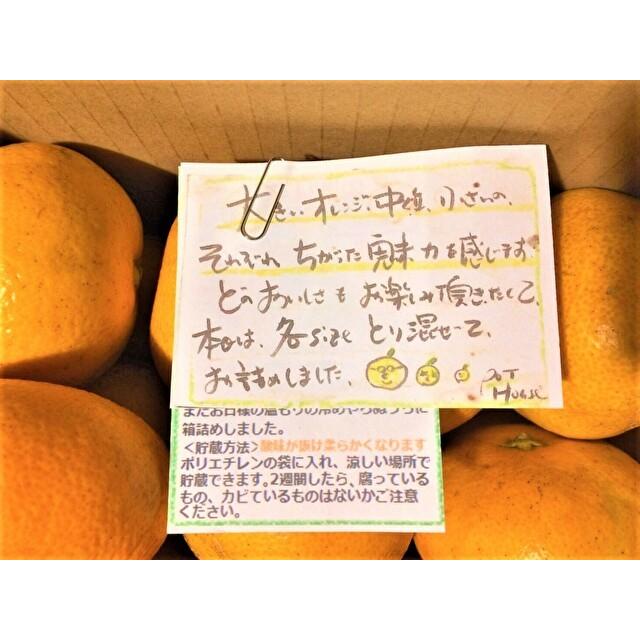 大きいオレンジ、中強、小さいの、
それぞれ、ちがった魅力を感じます
どのおいしさも お楽しみ頂きたくて、
本日は、各size とり混ぜて、
お詰めしました、
POT HOUSE
またお日様の温もりの冷めやらぬうちに
箱詰めしました。
<貯蔵方法>酸味が抜け柔らかくなります
ポリエチレンの袋に入れ、涼しい場所で
貯蔵できます。2週間したら、腐っている
もの、カビているものはないかご注意
ください。